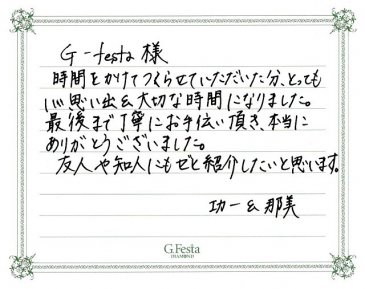 G-festa 様
時間をかけてつくらせていただいた分、とっても
いい思い出&大切な時間になりました。
最後まで丁寧にお手伝い頂き、本当に
ありがとうございました。
友人や知人にもぜひ紹介したいと思います。
功一 & 那美
G.Festa
DIAMOND